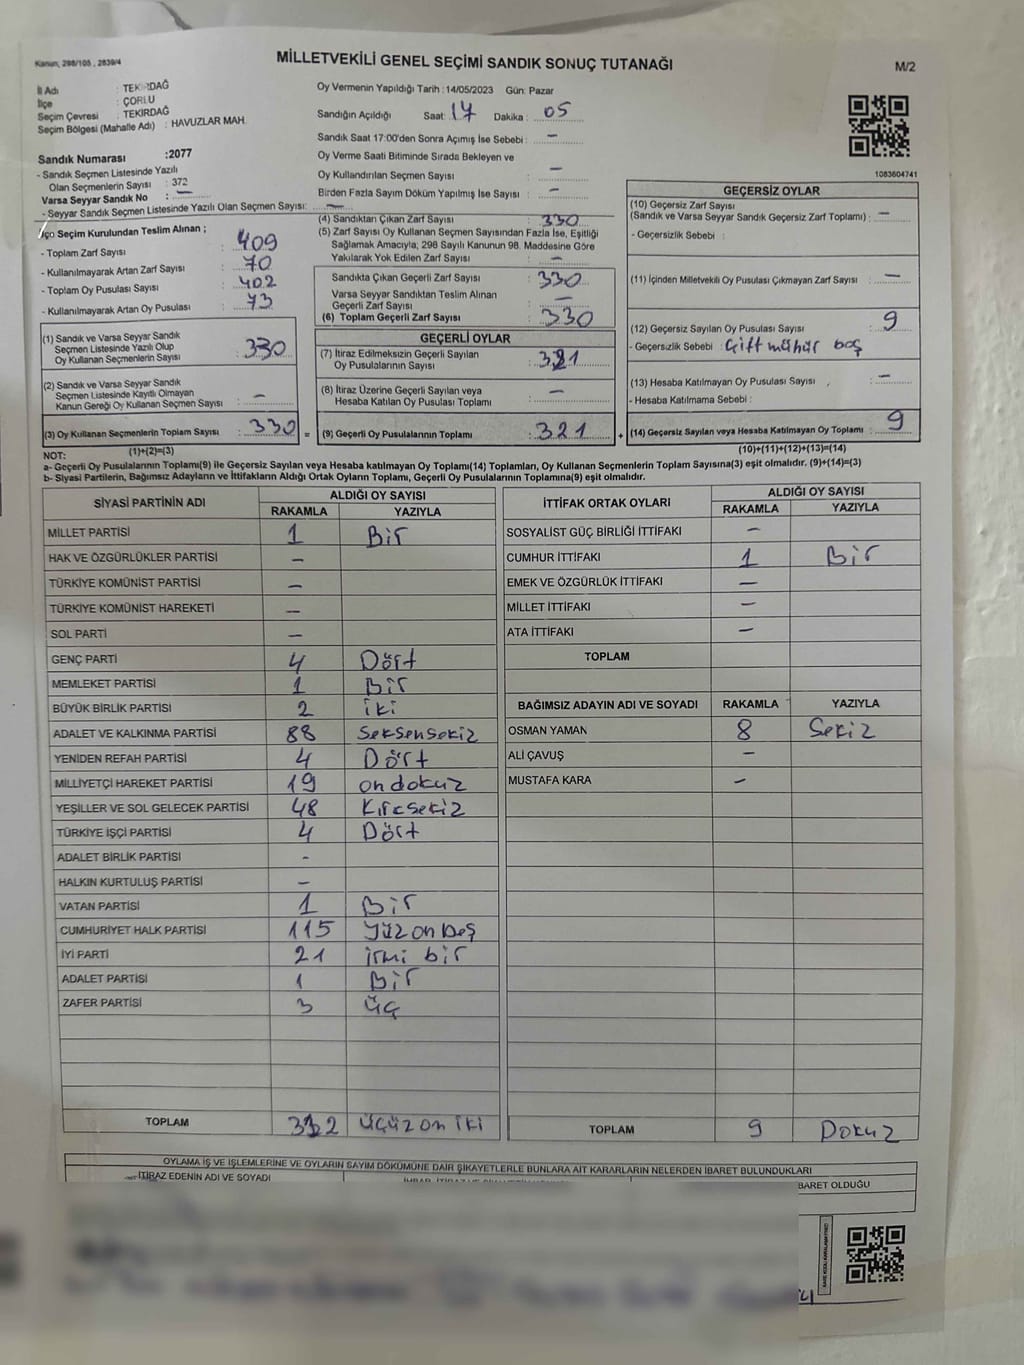 Kanun, 298/105 , 2839/4
MİLLETVEKİLİ GENEL SEÇİMİ SANDIK SONUÇ TUTANAĞI
M/2
İl Adı : TEKİRDAĞ
İlçe : ÇORLU
Seçim Çevresi : TEKİRDAĞ
Seçim Bölgesi (Mahalle Adı) : HAVUZLAR MAH.
Sandık Numarası :2077
- Sandık Seçmen Listesinde Yazılı
Olan Seçmenlerin Sayısı : 372
Varsa Seyyar Sandık No : —
- Seyyar Sandık Seçmen Listesinde Yazılı Olan Seçmen Sayısı: —
İlçe Seçim Kurulundan Teslim Alınan ;
- Toplam Zarf Sayısı : 409
- Kullanılmayarak Artan Zarf Sayısı : 70
- Toplam Oy Pusulası Sayısı : 402
- Kullanılmayarak Artan Oy Pusulası : 73
(1) Sandık ve Varsa Seyyar Sandık
Seçmen Listesinde Yazılı Olup
Oy Kullanan Seçmenlerin Sayısı : 330
(2) Sandık ve Varsa Seyyar Sandık
Seçmen Listesinde Kayıtlı Olmayan
Kanun Gereği Oy Kullanan Seçmen Sayısı : —
(3) Oy Kullanan Seçmenlerin Toplam Sayısı : 330 =
(1)+(2)=(3)
Oy Vermenin Yapıldığı Tarih : 14/05/2023 Gün: Pazar
Sandığın Açıldığı Saat: 17 Dakika : 05
Sandık Saat 17:00'den Sonra Açımış İse Sebebi : —
Oy Verme Saati Bitiminde Sırada Bekleyen ve
Oy Kullandırılan Seçmen Sayısı : —
Birden Fazla Sayım Döküm Yapılmış İse Sayısı : —
(4) Sandıktan Çıkan Zarf Sayısı : 330
(5) Zarf Sayısı Oy Kullanan Seçmen Sayısından Fazla İse, Eşitliği
Sağlamak Amacıyla; 298 Sayılı Kanunun 98. Maddesine Göre
Yakılarak Yok Edilen Zarf Sayısı : —
Sandıkta Çıkan Geçerli Zarf Sayısı : 330
Varsa Seyyar Sandıktan Teslim Alınan
Geçerli Zarf Sayısı : —
(6) Toplam Geçerli Zarf Sayısı : 330
GEÇERLİ OYLAR
(7) İtiraz Edilmeksizin Geçerli Sayılan
Oy Pusulalarının Sayısı : 321
(8) İtiraz Üzerine Geçerli Sayılan veya
Hesaba Katılan Oy Pusulası Toplamı : —
(9) Geçerli Oy Pusulalarının Toplamı : 321 +
1083604741
GEÇERSİZ OYLAR
(10) Geçersiz Zarf Sayısı
(Sandık ve Varsa Seyyar Sandık Geçersiz Zarf Toplamı) : —
- Geçersizlik Sebebi :
(11) İçinden Milletvekili Oy Pusulası Çıkmayan Zarf Sayısı : —
(12) Geçersiz Sayılan Oy Pusulası Sayısı : 9
- Geçersizlik Sebebi : Çift mühür boş
(13) Hesaba Katılmayan Oy Pusulası Sayısı : —
- Hesaba Katılmama Sebebi :
(14) Geçersiz Sayılan veya Hesaba Katılmayan Oy Toplamı : 9
(10)+(11)+(12)+(13)=(14)
NOT:
a- Geçerli Oy Pusulalarının Toplamı(9) ile Geçersiz Sayılan veya Hesaba katılmayan Oy Toplamı(14) Toplamları, Oy Kullanan Seçmenlerin Toplam Sayısına(3) eşit olmalıdır. (9)+(14)=(3)
b- Siyasi Partilerin, Bağımsız Adayların ve İttifakların Aldığı Ortak Oyların Toplamı, Geçerli Oy Pusulalarının Toplamına(9) eşit olmalıdır.
SİYASİ PARTİNİN ADI ALDIĞI OY SAYISI
RAKAMLA YAZIYLA
MİLLET PARTİSİ 1 Bir
HAK VE ÖZGÜRLÜKLER PARTİSİ —
TÜRKİYE KOMÜNİST PARTİSİ —
TÜRKİYE KOMÜNİST HAREKETİ —
SOL PARTİ —
GENÇ PARTİ 4 Dört
MEMLEKET PARTİSİ 1 Bir
BÜYÜK BİRLİK PARTİSİ 2 iki
ADALET VE KALKINMA PARTİSİ 88 Seksensekiz
YENİDEN REFAH PARTİSİ 4 Dört
MİLLİYETÇİ HAREKET PARTİSİ 19 ondokuz
YEŞİLLER VE SOL GELECEK PARTİSİ 48 Kırksekiz
TÜRKİYE İŞÇİ PARTİSİ 4 Dört
ADALET BİRLİK PARTİSİ -
HALKIN KURTULUŞ PARTİSİ —
VATAN PARTİSİ 1 Bir
CUMHURİYET HALK PARTİSİ 115 Yüz on beş
İYİ PARTİ 21 irmi bir
ADALET PARTİSİ 1 Bir
ZAFER PARTİSİ 3 üç
TOPLAM 312 üçüz on iki
İTTİFAK ORTAK OYLARI ALDIĞI OY SAYISI
RAKAMLA YAZIYLA
SOSYALİST GÜÇ BİRLİĞİ İTTİFAKI —
CUMHUR İTTİFAKI 1 Bir
EMEK VE ÖZGÜRLÜK İTTİFAKI —
MİLLET İTTİFAKI —
ATA İTTİFAKI —
TOPLAM
BAĞIMSIZ ADAYIN ADI VE SOYADI RAKAMLA YAZIYLA
OSMAN YAMAN 8 Sekiz
ALİ ÇAVUŞ —
MUSTAFA KARA —
TOPLAM 9 Dokuz
OYLAMA İŞ VE İŞLEMLERİNE VE OYLARIN SAYIM DÖKÜMÜNE DAİR ŞİKAYETLERLE BUNLARA AİT KARARLARIN NELERDEN İBARET BULUNDUKLARI
İTİRAZ EDENİN ADI VE SOYADI
BARET OLDUĞU